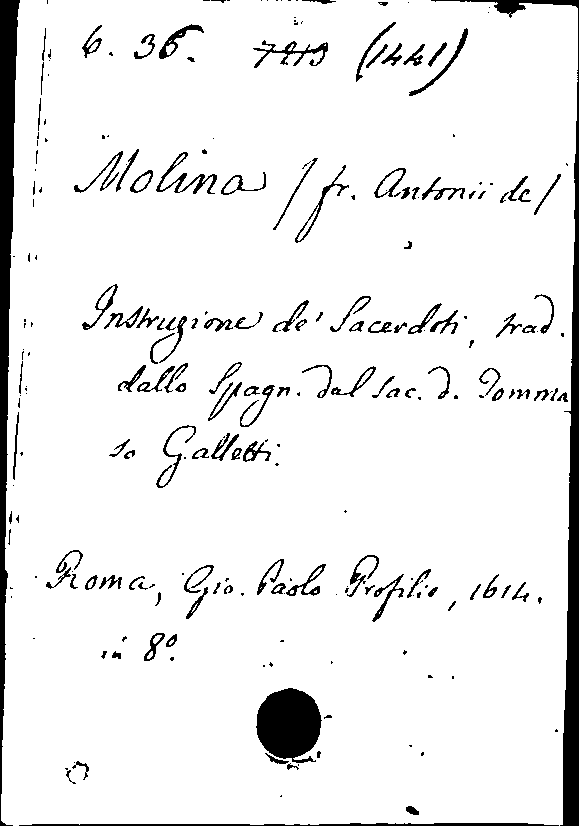 6. 36. 7213 (1441)
Molina / fr. Antonii de /
Instruzione de' Sacerdoti, trad.
dallo Spagn. dal sac. d. Tomma
so Galletti.
Roma, Gio. Paolo Profilio, 1614.
in 8º.